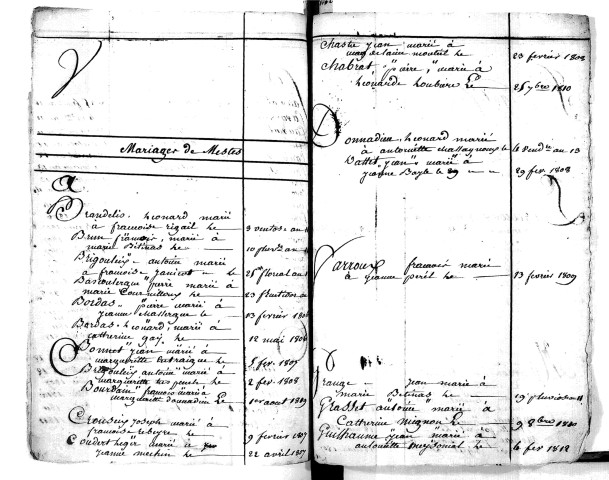 Mariages de Mestes
a
Brandelis. Léonard marié
à françoise rigail le 3 ventos an 11
Brun françois, marié à
marie Bélinas le 10 pluv. an
Brigouleix antoine marié
à françoise janicot le 25 floréal an
Bassoulergue pierre marié à
marie le 23 fructidor an
Bordas pierre marié à
jeanne Mallergue le 13 février 180
Bordas. Léonard, marié à
catherine gay. le 12 mai 180
Bonnet jean marié à
marguerite le 5 fev. 1807
antoine marié à
marguerite le 2 fev. 1808
Bourdain françois marié à
marguerite donnadieu le 1er aout 1809
Crouseix joseph marié à
françoise rebeyre le 9 février 1807
Coudert leger marié à
jeanne mechin le 22 avril 1807
Chaste jean marié à
magdelaine monteil le 23 fevrier 1808
Chabrat pierre, marié à
Léonarde Loubare Le 25 ybre 1810
Donnadieu. Léonard marié
à antoinette le 6 vendre an 13
Battet jean marié à
jeanne Bayle le 29 29 fev. 1808
farroux françois marié
à jeanne peril le 13 février 1809
grange jean marié à
marie Bélinas le 19 pluviose an 11
Grasset antoine marié à
Catherine mignon Le 9 8bre 1810
Guilhaume jean marié à
antoinette le 6 fev 1812